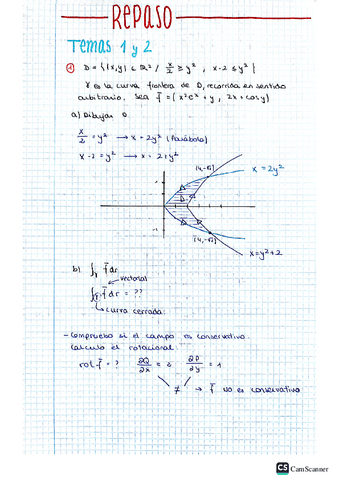 REPASO
Temas 1 y 2
① D = { (x,y) ∈ R² / x/2 ≥ y² , x-2 ≤ y² }
γ es la curva frontera de D, recorrida en sentido
arbitrario. Sea f̄ = ( x²eˣ + y , 2x + cos y )
a) Dibujar D
x/2 = y² → x = 2y² (Parábola)
x - 2 = y² → x = 2 + y²
(4,-√2)
x = 2y²
D
(4,-√2)
x = y² + 2
b) ∫γ f̄ dr
vectorial
∮γ f̄ dr = ??
curva cerrada
- Compruebo si el campo es conservativo.
Calculo el rotacional
rot f̄ = ? ∂Q/∂x = 2 ∂P/∂y = 1
≠ → f̄ no es conservativo
CS CamScanner